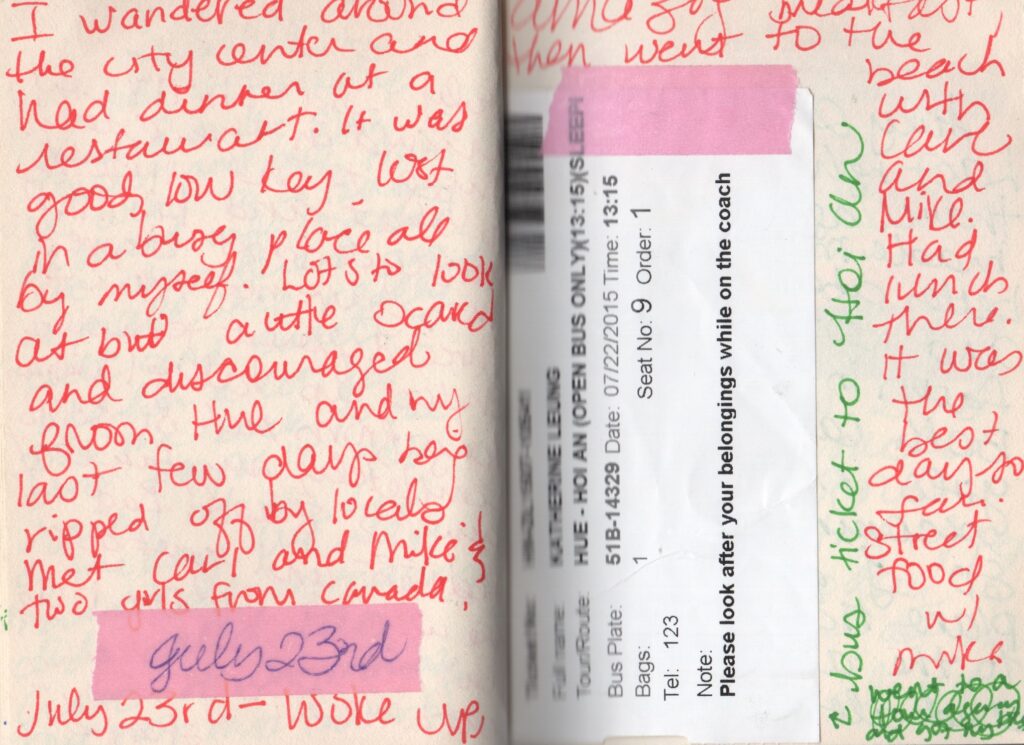 I wandered around
the city center and
had dinner at a
restaurant. It was
good, low key, lost
in a busy place all
by myself. Lots to look
at but a little scared
and discouraged
from Hue and my
last few days being
ripped off by locals.
Met Carl and Mike &
two girls from Canada.
July 23rd
July 23rd - Woke up,
amazing breakfast,
then went to the
beach
with
Carl
and
Mike.
Had
lunch
there.
It was
the
best
day so
far.
Street
food
w/
Mike
went to a
and got
Full name: KATHERINE LEUNG
Tour/Route: HUE - HOI AN (OPEN BUS ONLY)(13:15)(SLEEPI
Bus Plate: 51B-14329 Date: 07/22/2015 Time: 13:15
Bags: 1 Seat No: 9 Order: 1
Tel: 123
Note:
Please look after your belongings while on the coach
bus ticket to Hoi An